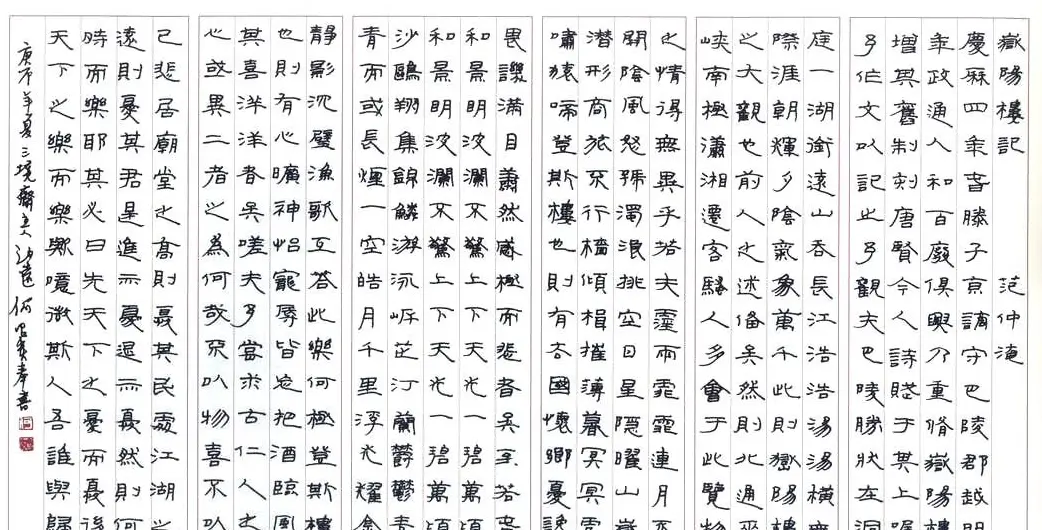 嶽陽樓記 范仲淹
慶厤四年春滕子京謫守巴陵郡越明
年政通人和百廢俱興乃重脩嶽陽樓
增其舊制刻唐賢今人詩賦于其上屬
予作文以記之予觀夫巴陵勝狀在洞
庭一湖銜遠山吞長江浩浩湯湯橫無
際涯朝輝夕陰氣象萬千此則嶽陽樓
之大觀也前人之述備矣然則北通巫
峽南極瀟湘遷客騷人多會于此覽物
之情得無異乎若夫霪雨霏霏連月不
開陰風怒號濁浪排空日星隱曜山嶽
潛形商旅不行檣傾楫摧薄暮冥冥虎
嘯猿啼登斯樓也則有去國懷鄉憂讒
畏譏滿目蕭然感極而悲者矣至若春
和景明波瀾不驚上下天光一碧萬頃
和景明波瀾不驚上下天光一碧萬頃
沙鷗翔集錦鱗游泳岸芷汀蘭鬱鬱青
青而或長煙一空皓月千里浮光耀金
靜影沉璧漁歌互答此樂何極登斯樓
也則有心曠神怡寵辱皆忘把酒臨風
其喜洋洋者矣嗟夫予嘗求古仁人之
心或異二者之為何哉不以物喜不以
己悲居廟堂之高則憂其民處江湖之
遠則憂其君是進而憂退而憂然則何
時而樂耶其必曰先天下之憂而憂後
天下之樂而樂歟噫微斯人吾誰與歸
年夏三境齋主 何 奉書